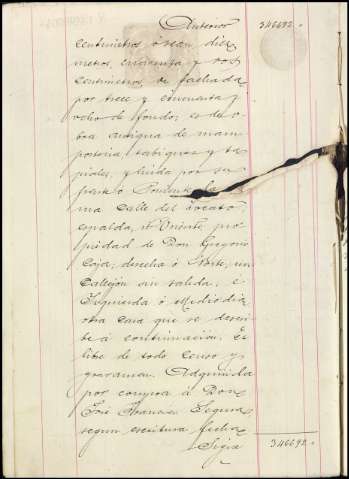 Anterior 346692.
centimetros ó sean diez
metros cincuenta y dos
centimetros de fachada
por trece y cincuenta y
ocho de fondo: es de o
bra antigua de mam
posteria, tabiques y ta
piales, y linda por su
frente ó Poniente la
ma calle del
espalda, ó Oriente pro
piedad de Don Gregorio
Caja; derecha ó Norte, un
Callejón sin salida; é
Izquierda ó Mediodia
otra casa que se descri
be á continuación. Es
libre de todo censo y
gravamen. Adquirida
por compra á Don
José Francisco Segura
segun escritura fecha
Sigue 346692.